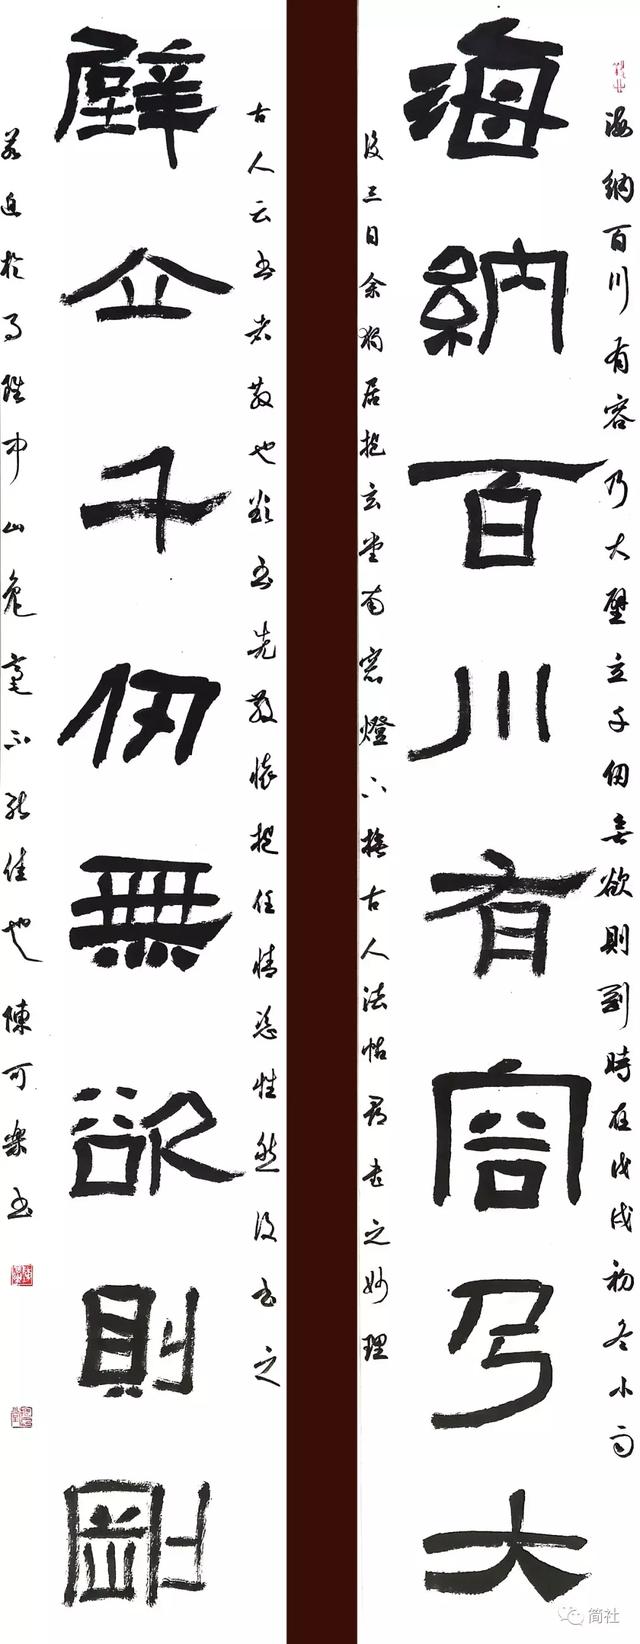 海納百川有容乃大壁立千仞無欲則剛時在戊戌初冬小
海納百川有容乃大
後三日余獨居抱玄堂南窗燈下撫古人法帖尋書之妙理
古人云書者散也欲書先散懷抱任情恣性然後書之
壁立千仞無欲則剛
若迫於事雖中山兔毫不能佳也陳可樂書
简社